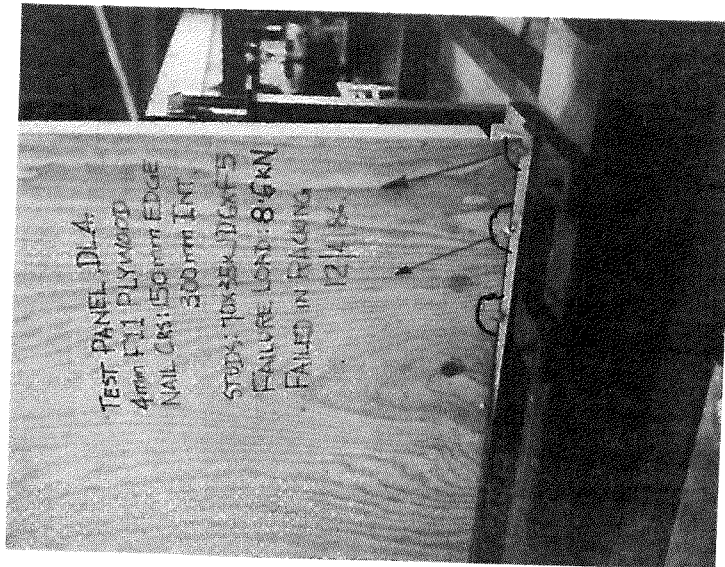 TEST PANEL DL4.
4mm F11 PLYWOOD
NAIL CRS: 150mm EDGE
300mm INT.
STUDS: 70x35 F5
FAILURE LOAD: 8.6KN
FAILED IN RACKING
12/4/86